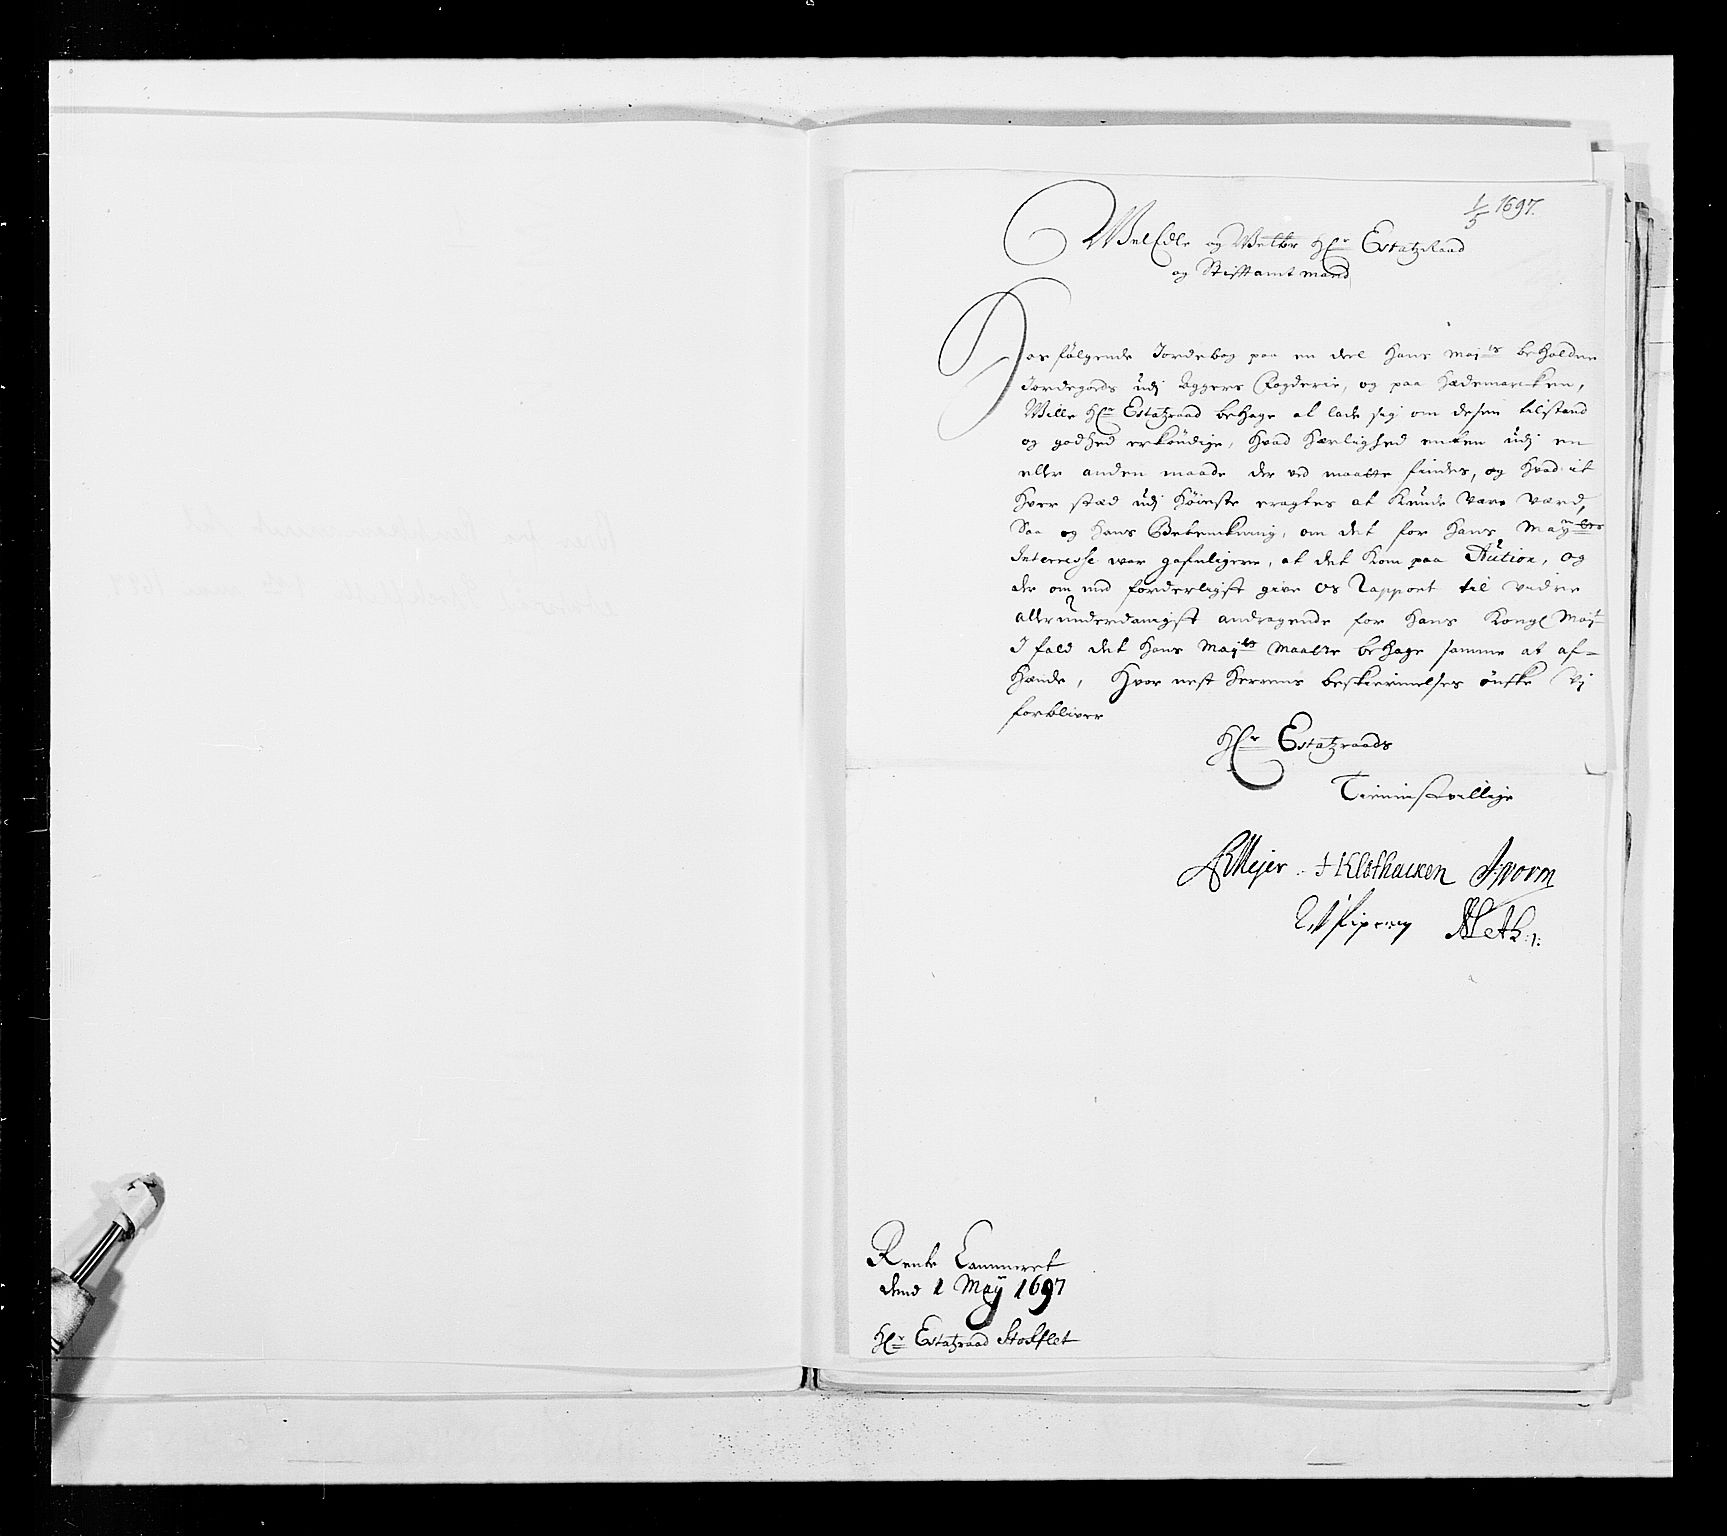 1/5 1697.
WelEdle og Welbr Hr Estatzraad
og Stifftamtmand
Hos følgende Jordebog paa en deel Hans Majts beholdne
Jordegods udj Aggers Fogderie, og paa Hedemarcken,
Wille Hr Estatzraad behage at lade sig om desen tilstand
og godhed erkündige, hvad herlighed enten udj en
eller anden maade der ved maatte findes, og hvad it
hver stæd udj høieste eragtes at kunde være værd,
Saa og hans Betenckning, om det for Hans Mayts
Interresse var gafnligere, at det kom paa Aution, og
der om med forderligst give os Rapport til vidre
allerunderdanigst andragende for Hans Kongl Majt
I fald det Hans Majts maatte behage samme at af-
hænde, Hvor nest Herrens beskiermelses ønske Vj
forbliver
Hr Estatzraads
Tieninstvillige
Mejer J Klothacken J: worm
Piper
Rente Cammeret
dend 1 Maÿ 1697
Hr Estatzraad Stokflet